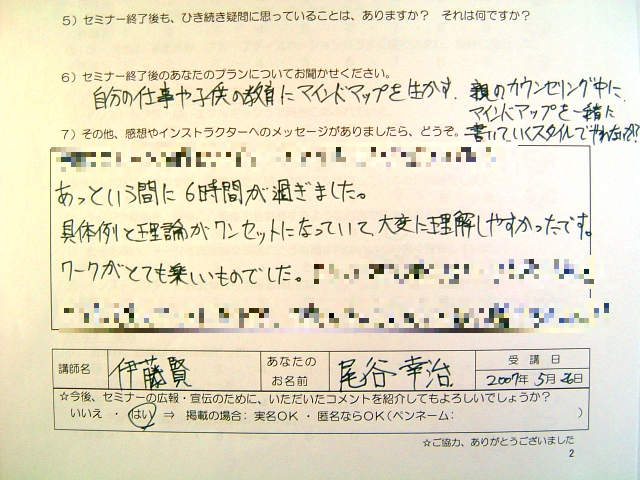 5）セミナー終了後も、ひき続き疑問に思っていることは、ありますか？ それは何ですか？
6）セミナー終了後のあなたのプランについてお聞かせください。
自分の仕事や子供の教育にマインドマップを生かす。親のカウンセリング中に
マインドマップを一緒に
書いていくスタイルで
7）その他、感想やインストラクターへのメッセージがありましたら、どうぞ。
あっという間に6時間が過ぎました。
具体例と理論がワンセットになっていて、大変に理解しやすかったです。
ワークがとても楽しいものでした。
講師名 伊藤賢 あなたのお名前 尾谷幸治 受講日 2007年5月26日
☆今後、セミナーの広報・宣伝のために、いただいたコメントを紹介してもよろしいでしょうか？
いいえ ・ はい ⇒ 掲載の場合: 実名OK ・ 匿名ならOK（ペンネーム: ）
☆ご協力、ありがとうございました
2